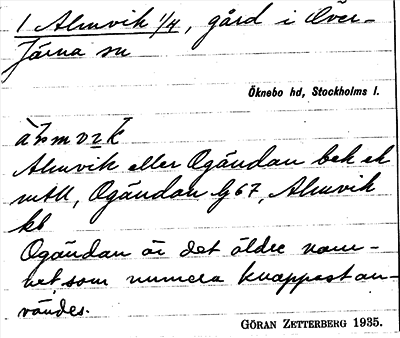 1 Almvik 1/4, gård i Över-
Järna sn
Öknebo hd, Stockholms l.
Almvik eller Ogåndan bek ek
mtll, Ogåndan Gg 67, Almvik
kb
Ogåndan är det äldre nam-
net som numera knappast an-
vändes.
GÖRAN ZETTERBERG 1935.